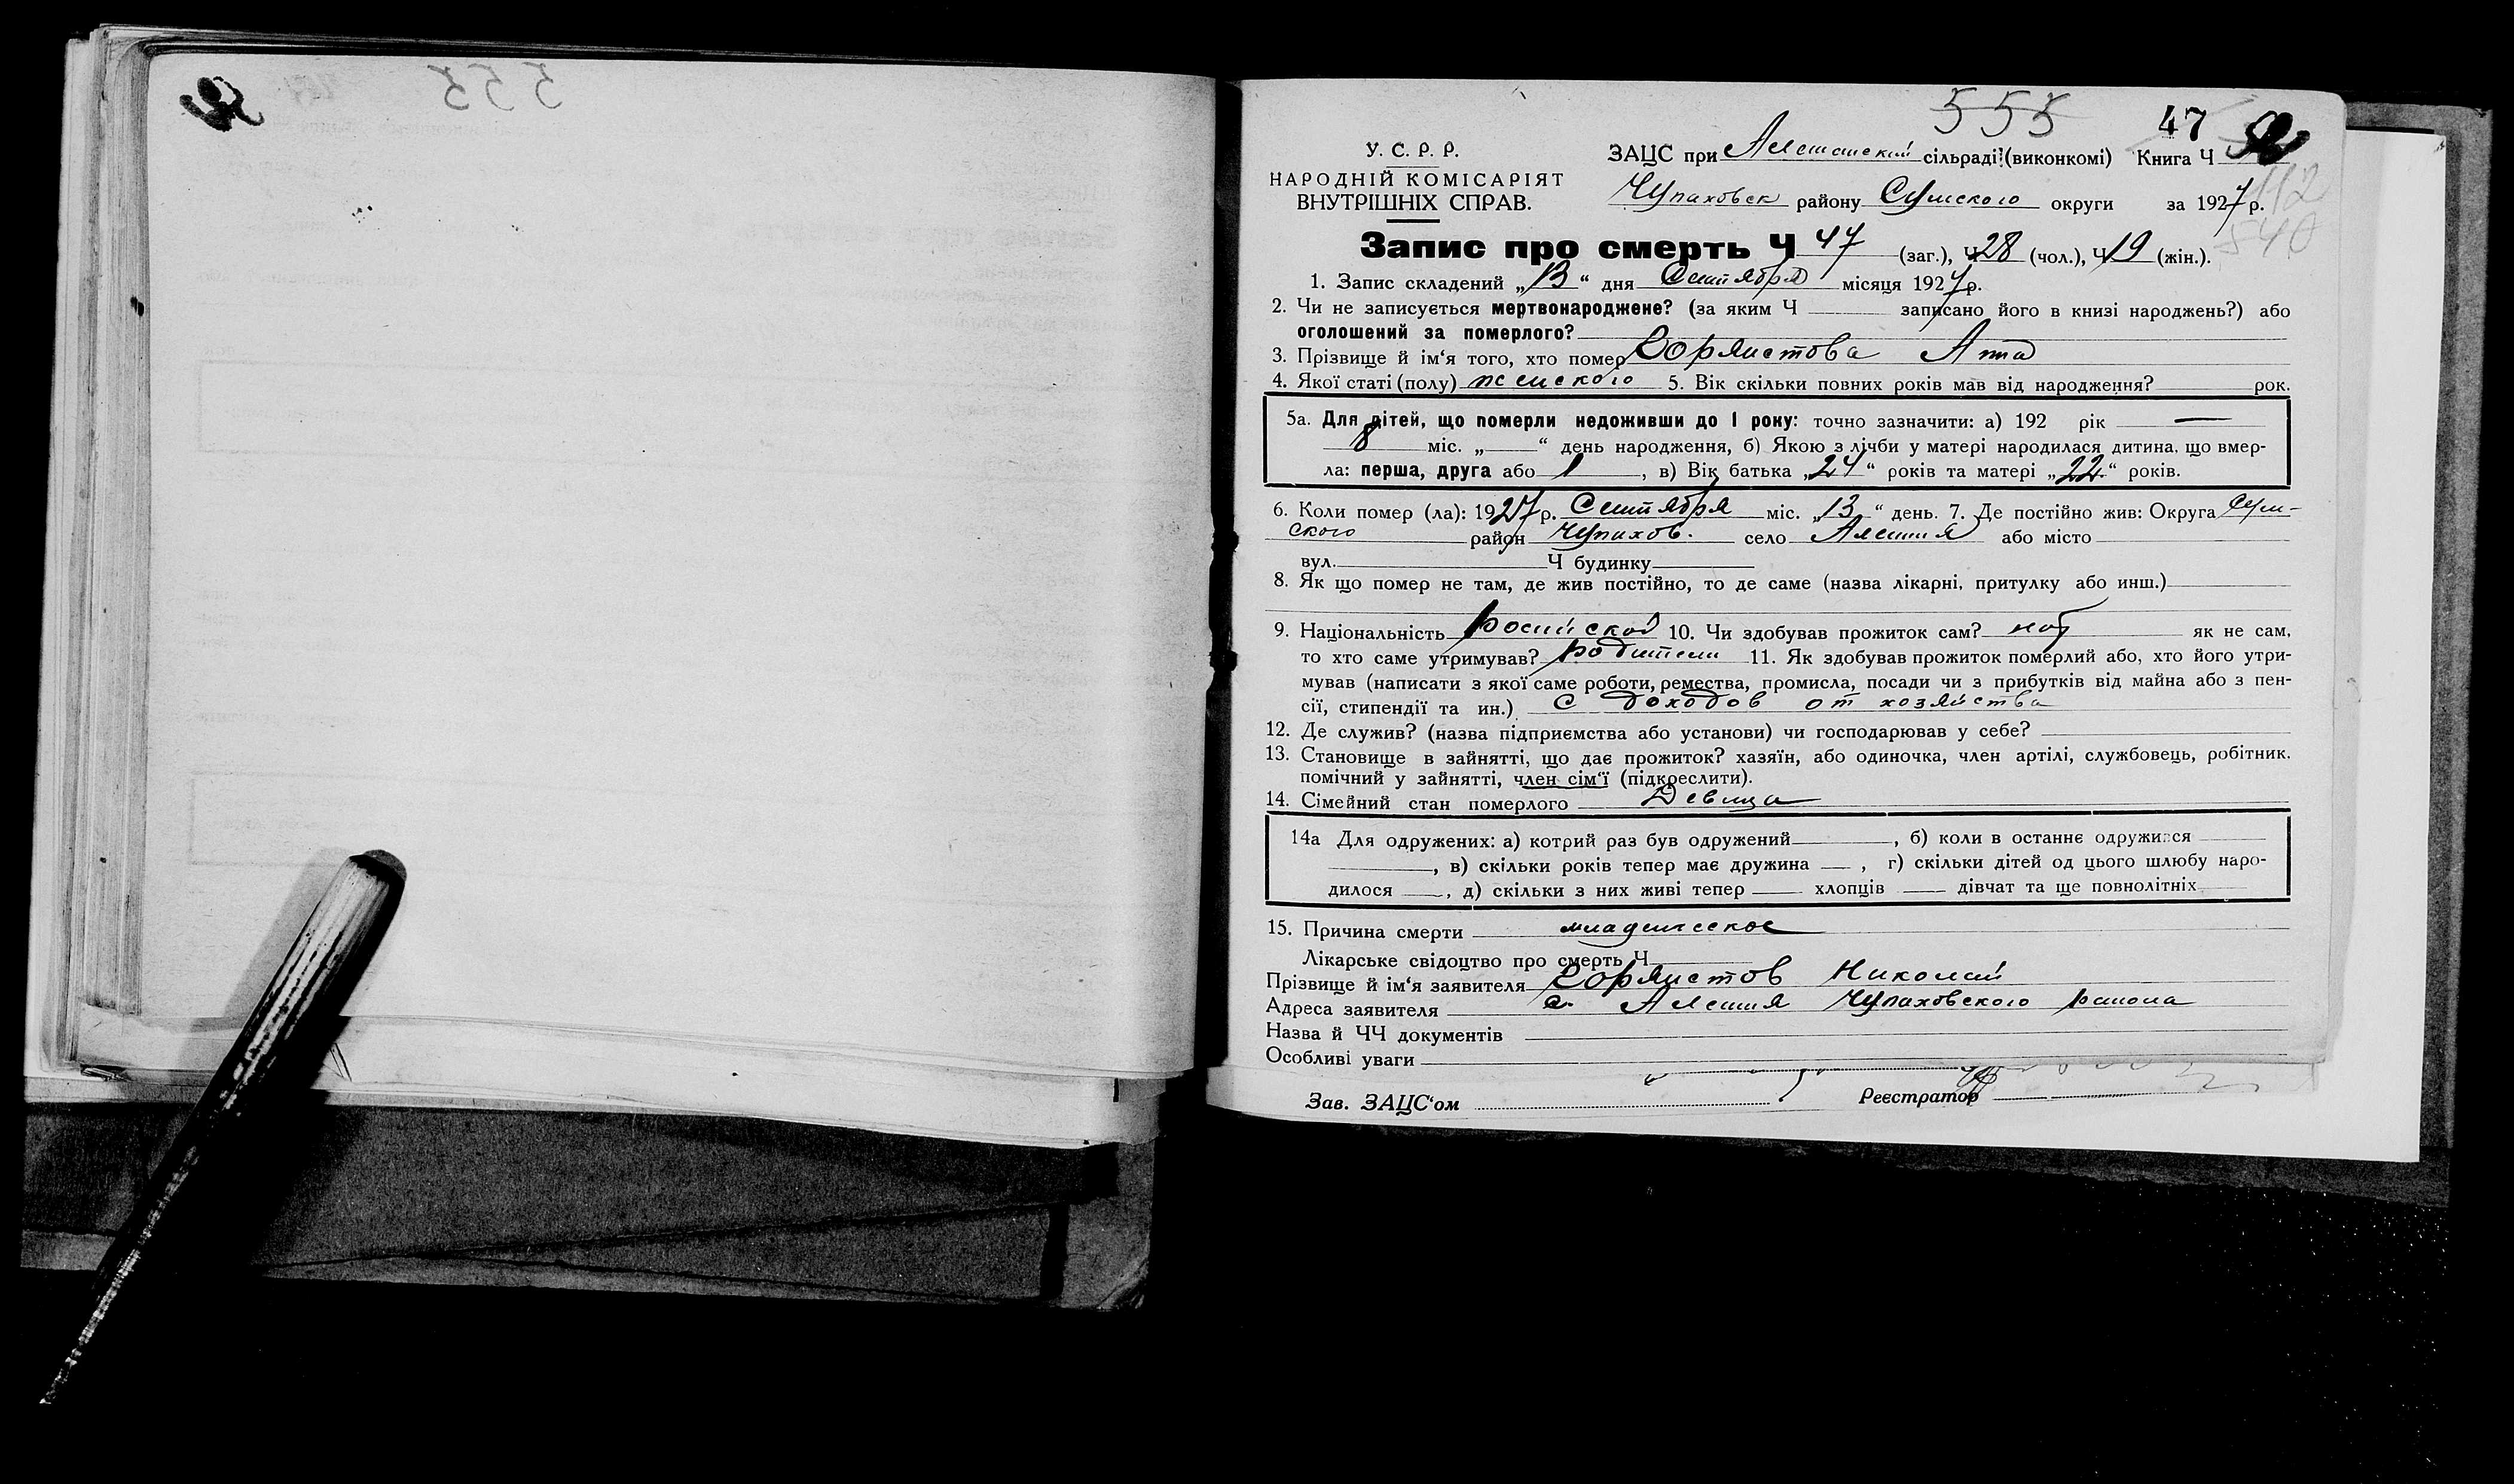 555
47
У. С. Р. Р.
ЗАЦС при Алешанский сільраді (виконкомі) Книга Ч
НАРОДНІЙ КОМІСАРІЯТ
ВНУТРІШНІХ СПРАВ.
Чупаховск району Сумского округи за 1927 р.
112
540
Запис про смерть Ч 47 (заг.), Ч 28 (чол.), Ч 19 (жін.).
1. Запис складений „13“ дня Сентября місяця 1927 р.
2. Чи не записується мертвонароджене? (за яким Ч записано його в книзі народжень?) або
оголошений за померлого?
3. Прізвище й ім‘я того, хто помер Анна
4. Якої статі (полу) женского 5. Вік скільки повних років мав від народження? рок.
5а. Для дітей, що померли недоживши до 1 року: точно зазначити: а) 192 рік —
8 міс. „ “ день народження, б) Якою з лічби у матері народилася дитина, що вмер-
ла: перша, друга або 1, в) Вік батька „24“ років та матері „22“ років.
6. Коли помер (ла): 1927 р. Сентября міс. „13“ день. 7. Де постійно жив: Округа Сум-
ского район Чупахов. село Алешня або місто
вул. Ч будинку
8. Як що помер не там, де жив постійно, то де саме (назва лікарні, притулку або инш.)
9. Національність 10. Чи здобував прожиток сам? нет як не сам,
то хто саме утримував? родители 11. Як здобував прожиток померлий або, хто його утри-
мував (написати з якої саме роботи, ремества, промисла, посади чи з прибутків від майна або з пен-
сії, стипендії та ин.) с доходов от хозяйства
12. Де служив? (назва підприємства або установи) чи господарював у себе?
13. Становище в зайнятті, що дає прожиток? хазяїн, або одиночка, член артілі, службовець, робітник.
помічний у зайнятті, член сім‘ї (підкреслити).
14. Сімейний стан померлого Девица
14а Для одружених: а) котрий раз був одружений, б) коли в останнє одружився
, в) скільки років тепер має дружина , г) скільки дітей од цього шлюбу наро-
дилося , д) скільки з них живі тепер хлопців дівчат та ще повнолітніх
15. Причина смерти младенческое
Лікарське свідоцтво про смерть Ч
Прізвище й ім‘я заявителя Николай
Адреса заявителя с. Алешня Чупаховского района
Назва й ЧЧ документів
Особливі уваги
Зав. ЗАЦС‘ом Реєстратор